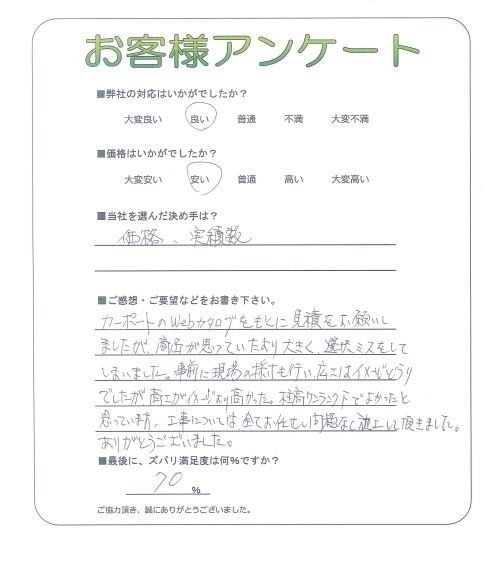 お客様アンケート
■弊社の対応はいかがでしたか？
大変良い 良い 普通 不満 大変不満
■価格はいかがでしたか？
大変安い 安い 普通 高い 大変高い
■当社を選んだ決め手は？
価格、実績数
■ご感想・ご要望などをお書き下さい。
カーポートのWebカタログをもとに見積をお願いし
ましたが、商品が思っていたより大きく、選択ミスをして
しまいました。事前に現場の採寸も行い、広さはイメージどうり
でしたが高さがイメージより高かった。柱高 でよかったと
思っています。工事については、全てお任せし問題なく施工して頂きました。
ありがとうございました。
■最後に、ズバリ満足度は何%ですか？
70 %
ご協力頂き、誠にありがとうございました。